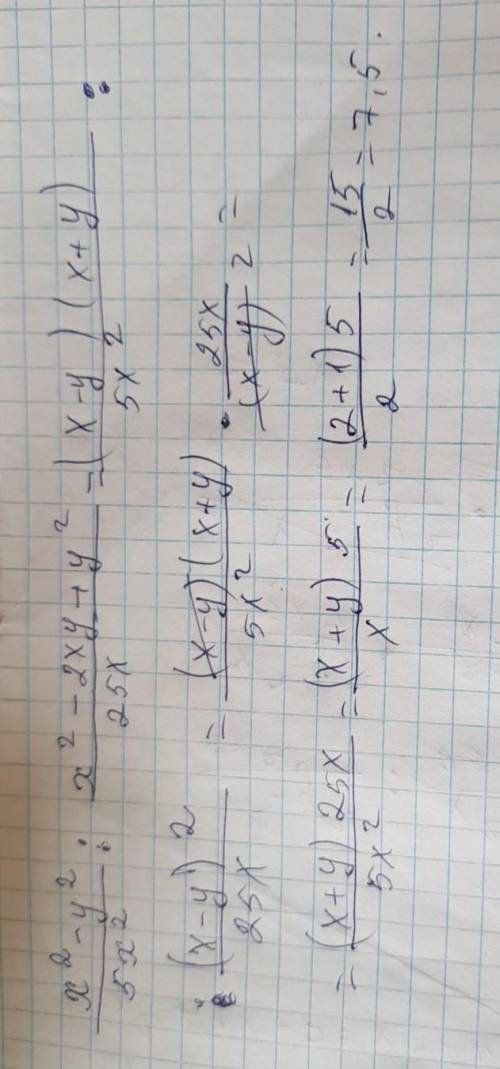 x² - y² / 5x² : x² - 2xy + y² / 25x = (x - y)(x + y) / 5x² :
: (x - y)² / 25x = (x - y)(x + y) / 5x² · 25x / (x - y)² =
= (x + y) 25x / 5x² = (x + y) 5 / x = (2 + 1) 5 / 2 = 15 / 2 = 7,5.